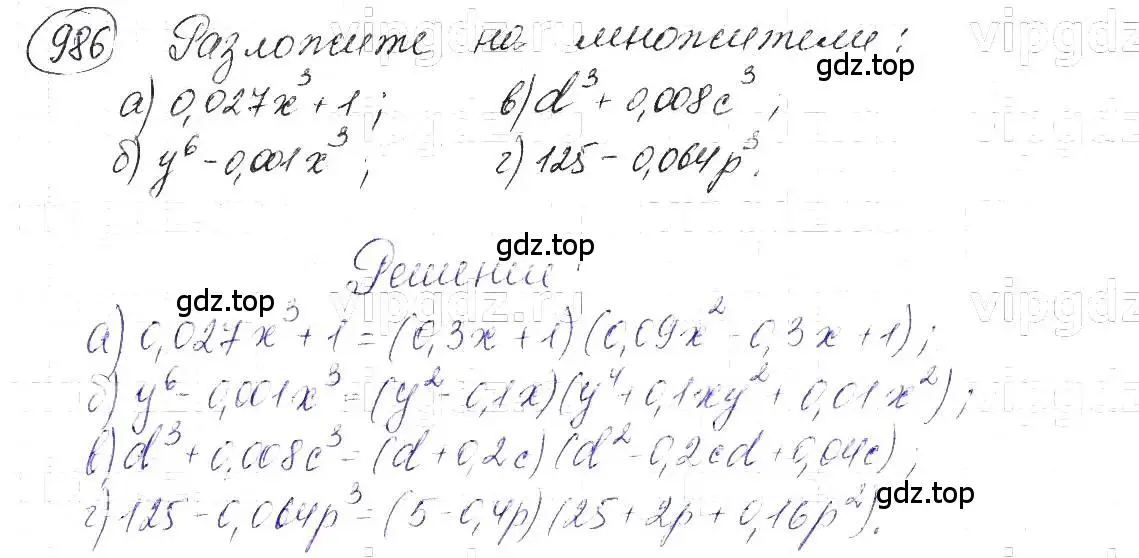 986 Разложите на множители:
а) 0,027x³ + 1; в) d³ + 0,008c³;
б) y⁶ - 0,001x³; г) 125 - 0,064p³.
Решение:
а) 0,027x³ + 1 = (0,3x + 1)(0,09x² - 0,3x + 1);
б) y⁶ - 0,001x³ = (y² - 0,1x)(y⁴ + 0,1xy² + 0,01x²);
в) d³ + 0,008c³ = (d + 0,2c)(d² - 0,2cd + 0,04c);
г) 125 - 0,064p³ = (5 - 0,4p)(25 + 2p + 0,16p²).
gdz.top
gdz.top
gdz.top
gdz.top